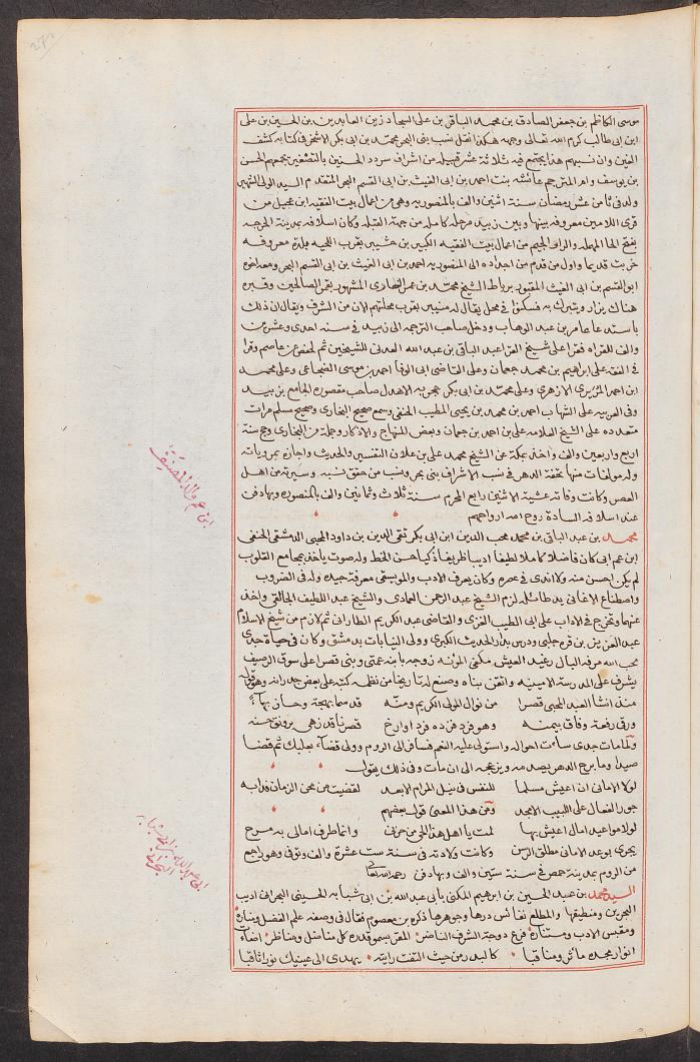 موسى الكاظم بن جعفر الصادق بن محمد الباقر بن على السجاد زين العابدين بن الحسين بن على
ابن ابى طالب كرم الله تعالى وجهه هكذا نقل نسب بنى البحر محمد بن ابى بكر الاشخر فى كتابه كشف
الغين وان نسبهم هذا يجتمع فيه ثلاثة عشر قبيله من اشراف سردد الحسنين بالتصغير يجمعهم الحسن
بن يوسف وام المترجم عائشه بنت احمد بن ابى الغيث بن ابى القسم البحر المقدم السيد الولى الشهير
ولد فى ثامن عشر رمضان سنة اثنين والف بالمنصوريه وهى من اعمال بيت الفقيه ابن عجيل من
قرى اللامين معروفه بينها وبين زبيد مرحله كامله من جهة القبله وكان اسلافه بمدينة الحرجه
بفتح الحا المهمله والرا والجيم من اعمال بيت الفقيه الكبير بن حشيبر بقرب اللحيه بلدة معروفه
خربت قديما واول من قدم من اجداده الى المنصوريه احمد بن ابى الغيث بن ابى القسم البحر ومعه اخوه
ابو القسم بن ابى الغيث المقبور برباط الشيخ محمد بن عمر النهارى المشهود بقمر الصالحين وقبره
هناك يزار ويتبرك به فسكنوا فى محل يقال له منيبر بقرب محلتهم الان من الشرق ويقال ان ذلك
باستدعا عامر بن عبد الوهاب ودخل صاحب الترجمه الى زبيد فى سنه احدى وعشرين
والف للقراه فقرا على شيخ القرا عبد الباقى بن عبد الله العدنى للشيخين ثم لحفص عن عاصم وقرا
فى الفقه على ابراهيم بن محمد جعمان وعلى القاضى ابى الوفا احمد بن موسى الضجاعى وعلى محمد
ابن احمد المزيرى الازهرى وعلى محمد بن ابى بكر جحربه الاهدل صاحب مقصورة الجامع بزبيد
وفى العربيه على الشهاب احمد بن محمد بن يحيى المطيب الحنفى وسمع صحيح البخارى وصحيح مسلم مرات
متعدده على الشيخ العلامه على بن احمد بن جعمان وبعض المنهاج والاذكار وجملة من البخارى وحج سنة
اربع واربعين والف واخذ بمكة عن الشيخ محمد على بن علان التفسير والحديث واجازه بمروياته
وله مولفات منها تحفة الدهر فى نسب الاشراف بنى بحر ونسب من حقق نسبه وسيرته من اهل
العصر وكانت وفاته عشية الاثنين رابع المحرم سنة ثلاث وثمانين والف بالمنصوره وبها دفن
عند اسلافه السادة روح الله ارواحهم
محمد بن عبد الباقى بن محمد محب الدين ابن ابى بكر تقى الدين بن داود المحبى الدمشقى الحنفى
ابن عم ابى كان فاضلا كاملا لطيفا اديبا ظريفا ذكيا حسن الخط وله صوت ياخذ بمجامع القلوب
لم يكن احسن منه ولا اندى فى عصره وكان يعرف الادب والموسيقى معرفة جيده وله فى الضروب
واصطناع الاغانى يد طائله لزم الشيخ عبد الرحمن العمادى والشيخ عبد اللطيف الجالقى واخذ
عنهما وتخرج فى الاداب على ابى الطيب الغزى والقاضى عبد الكريم الطارانى ثم لازم من شيخ الاسلام
عبد العزيز بن قره جلبى ودرس بدار الحديث الكبرى وولى النيابات بدمشق وكان فى حياة جدى
محب الله مرفه البال رغيد العيش مكفى المؤنه زوجه بابنه عمتى وبنى قصرا على سوق الرصيف
يشرف على المدرسة الامينيه واتقن بناه وصنع له تاريخا من نظمه كتبه على بعض جدرانه وهو قوله
منذ انشا العبد المحبى قصرا من نوال المولى الكريم ومنه قد سما بهجة وحسان بهآ
ورقى رفعة وفاق بيمنه وهو فرد فزده فردا وارخ قصرنا قد زهى برونق حسنه
ولما مات جدى ساءت احواله واستولى عليه الغم فسافر الى الروم وولى قضآء بعلبك ثم قضا
صيدا وما برح الدهر يصدمه ويزعجه الى ان مات وفى ذلك يقول
لولا الامانى ان اعيش مسلما للنفس فى نيل المرام الابعد لقضيت من محن الزمان فدابه
جور الفعال على اللبيب الامجد ومن هذا المعنى قول بعضهم
لولا مواعيد امال اعيش بها لمت يا اهل هذا الحى من زمن وانما طرف امالى به مرح
يجرى بوعد الامانى مطلق الرسن وكانت ولادته فى سنة ست عشرة والف وتوفى وهو راجع
من الروم بمدينة حمص فى سنة ستين والف وبها دفن رحمه الله تعالى
السيد محمد بن عبد الحسين بن ابراهيم المكنى بابى عبد الله بن ابى شبابه الحسينى البحرانى اديب
البحرين ومنطيقها والمطلع نفائس درها وجوهرها ذكره بن معصوم فقال فى وصفه علم الفضل ومناره
ومقبس الادب ومستناره فرع دوحة الشرف الناضر المقر بسمو قدره كل مناضل ومناظر اضاءت
انوار مجده مآثر ومناقبا كالبدر من حيث التفت رايته يهدى الى عينيك نورا ثاقبا
ابن عم والد المصنف
ابى عبد الله بن ابى شبابه
البحرانى